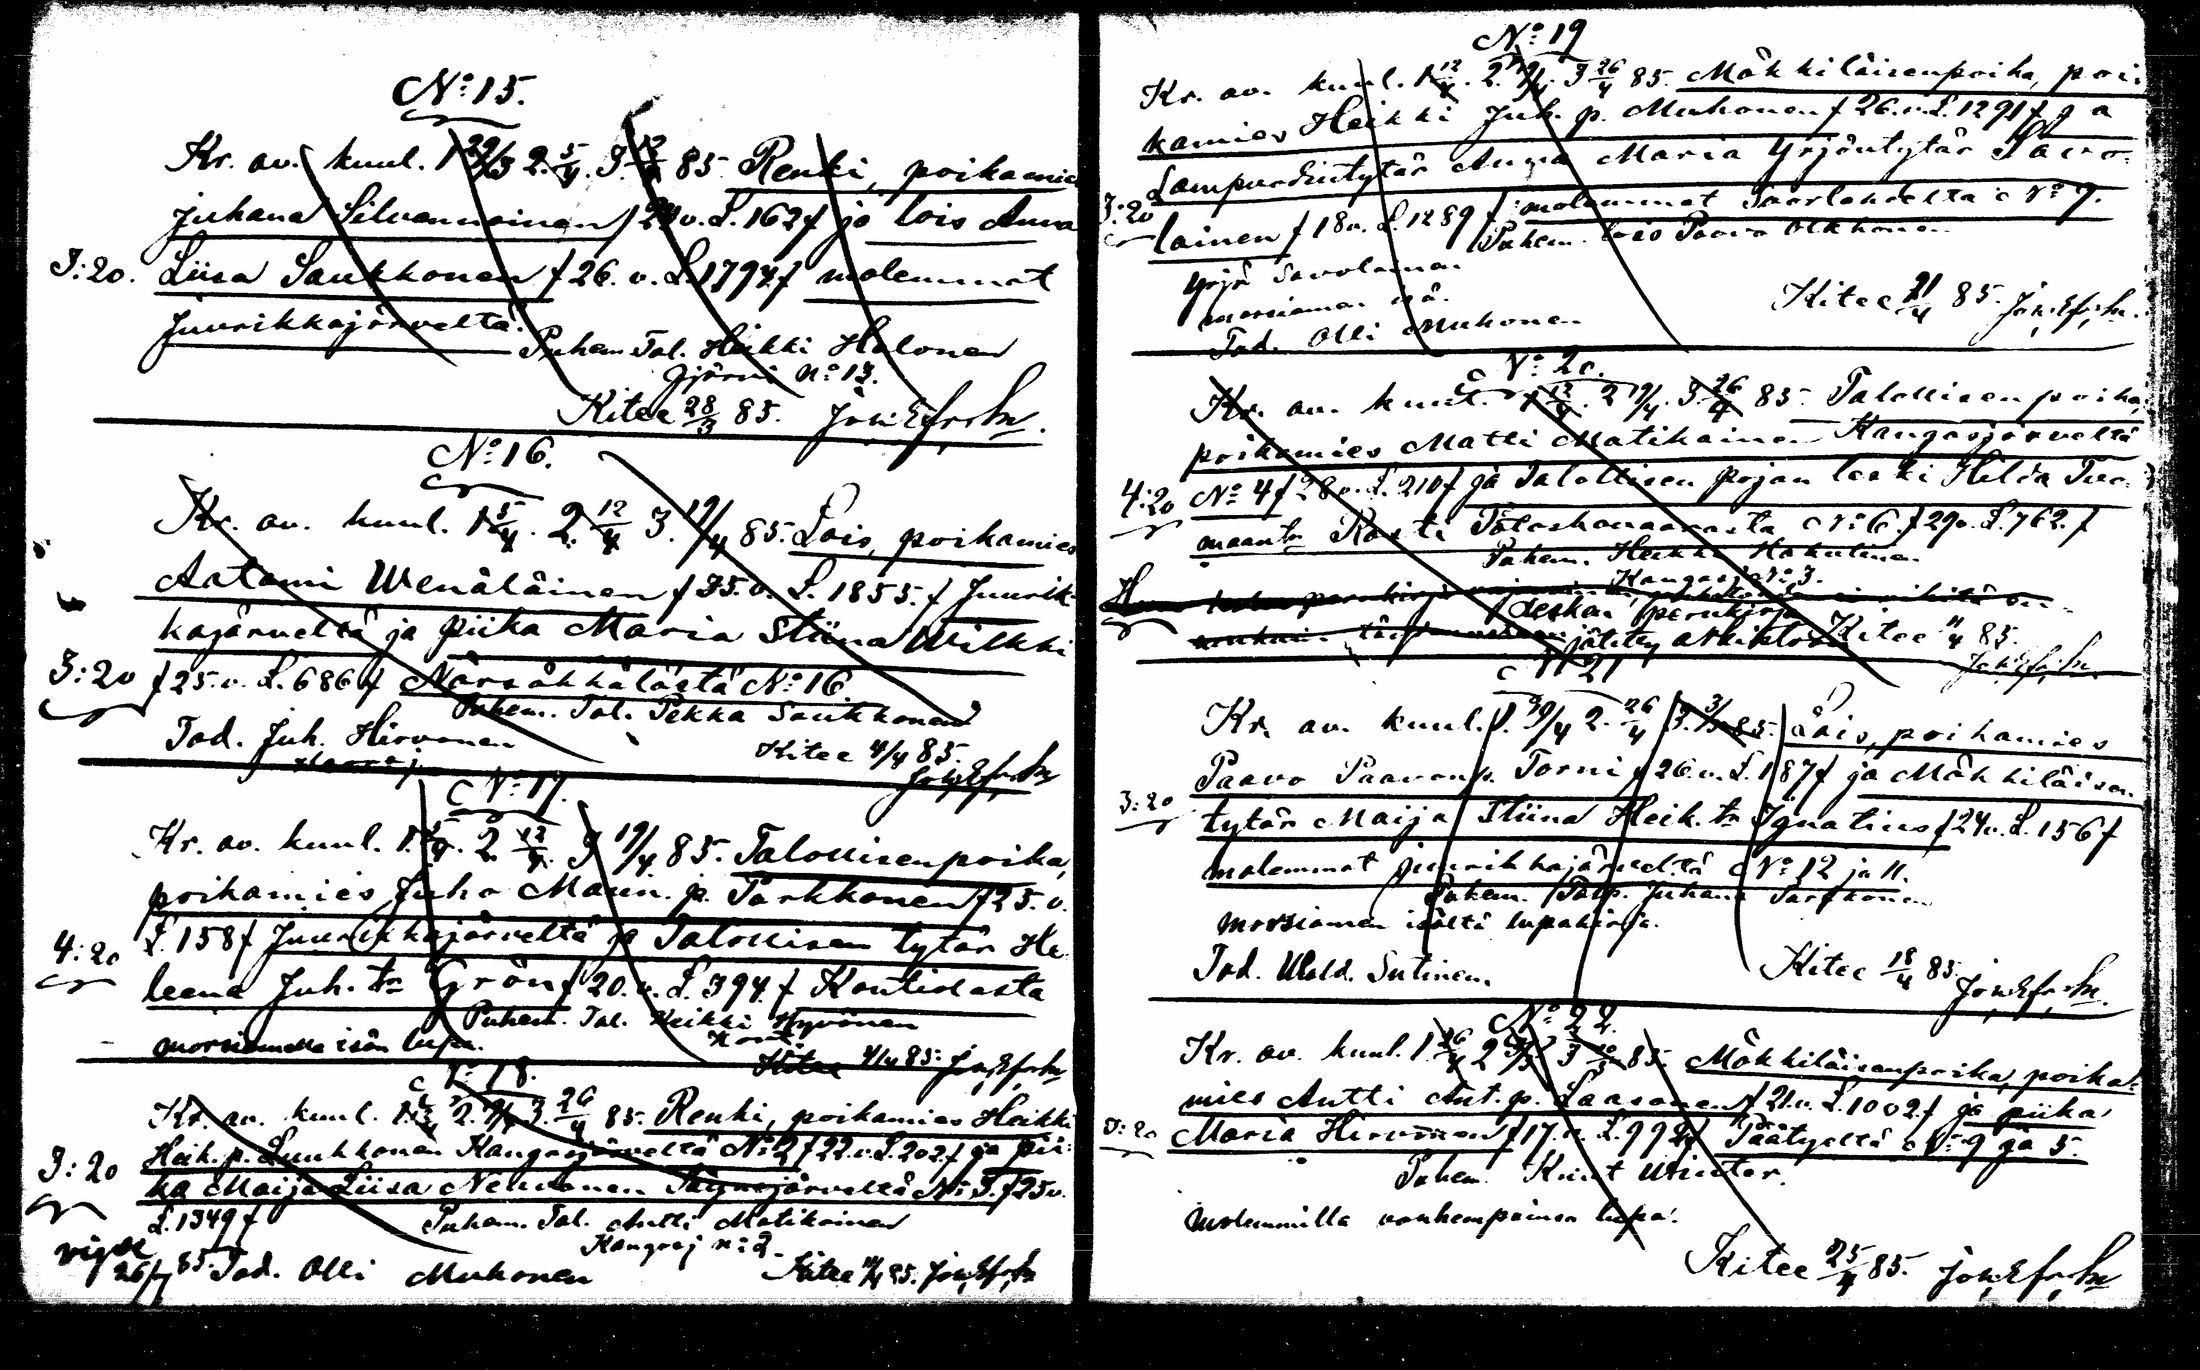 No 15.
Kr. av. kuul. 1 29/3 2. 5/4. 3. 12/4 85. Renki, poikamies
Juhana Silvennoinen / v. L. 162 / ja lois Anna
3:20. Liisa Saukkonen / 26. v. L. 1794. / molemmat
Juurikkajärveltä.
Puhem. Tal. Heikki Halonen
Jjärvi No 13.
Kitee 28/3 85.
No 16.
Kr. av. kuul. 1 5/4. 2. 12/4 3. 19/4 85. Lois, poikamies
Aatami Wenäläinen / 35. v. L. 1855. / Juurik-
kajärveltä ja piika Maria Stiina Wilkki
3:20 / 25. v. L. 686 / Närsäkkälästä No 16
Puhem. Tal. Pekka Saukkonen
Tod. Juh. Hirvonen
Kitee 4/4 85.
No 17.
Kr. av. kuul. 1. 5/4. 2. 12/4. 3 19/4 85. Talollisenpoika,
poikamies Juho Maur. p. Parkkonen / 25. v.
4:20 L. 158 / Juurikkajärveltä ja Talollisen tytär He-
leena Juh. tr Grön / 20. v. L. 394. / Kontiolasta
Puhem. Tal. Heikki Hyvönen
morsiamella isän lupa.
Kitee 4/4 85.
No 18.
Kr. av. kuul. 1 2. 3. 26/4 85. Renki, poikamies Heikki
Heik. p. Luukkonen Kangasjärveltä No 2 / 22. v. L. 202. / ja pii-
3:20 ka Maija Liisa Nenonen No 3. / 25 v.
L. 1349 /
Puhem. Tal. Antti Matikainen
Kangasj No 2.
26/7 85. Tod. Olli Muhonen
Kitee 85.
No 19
Kr. av. kuul. 1 12/4. 2. 19/4. 3 26/4 85. Mökkiläisenpoika, poi-
kamies Heikki Juh. p. Muhonen / 26. v. L. 1291 / ja
Lampuodintytär Anna Maria Yrjöntytär Savo-
3:20 lainen / 18 v. L. 1289 / molemmat Suorlahdelta No 7.
Puhem. lois Paavo
Yrjö Savolainen
morsiamen isä.
Tod. Olli Muhonen
Kitee 21/4 85.
No 20.
Kr. av. kuul. 1 12/4. 2 19/4. 3. 26/4 85. Talollisen poika,
poikamies Matti Matikainen Kangasjärveltä
4:20 No 4 / 28 v. L. 210 / ja Talollisen pojan leski Hilda Tuo-
maantr Rosti Potoskavaarasta No 6. / 29 v. L. 762. /
Puhem. Heikki Hakulinen
Kangasj No 3.
Lesken perukirja
jätetty arkistoon
Kitee 11/4 85.
No 21
Kr. av. kuul. 1. 19/4 2. 26/4 3. 3/5 85. Lois, poikamies
Paavo Paavonp. Torni / 26. v. L. 187 / ja Mökkiläisen
3:20 tytär Maija Stiina Heik. tr Ignatius / 24 v. L. 156 /
molemmat Juurikkajärveltä No 12 ja 11.
Puhem. Talp. Juhana Parkkonen
morsiamen isältä lupakirja.
Tod. Wald. Sutinen.
Kitee 18/4 85.
No 22.
Kr. av. kuul. 1. 26/4 2 3/5 3 10/5 85. Mökkiläisenpoika, poika-
mies Antti Ant. p. Laasonen / 21. v. L. 1002. / ja piika
3:20 Maria Hirvonen / 17. v. L. 992 / Päätyeltä No 9 ja 5.
Puhem. Knut Winter.
Molemmilla vanhempainsa lupa.
Kitee 25/4 85.